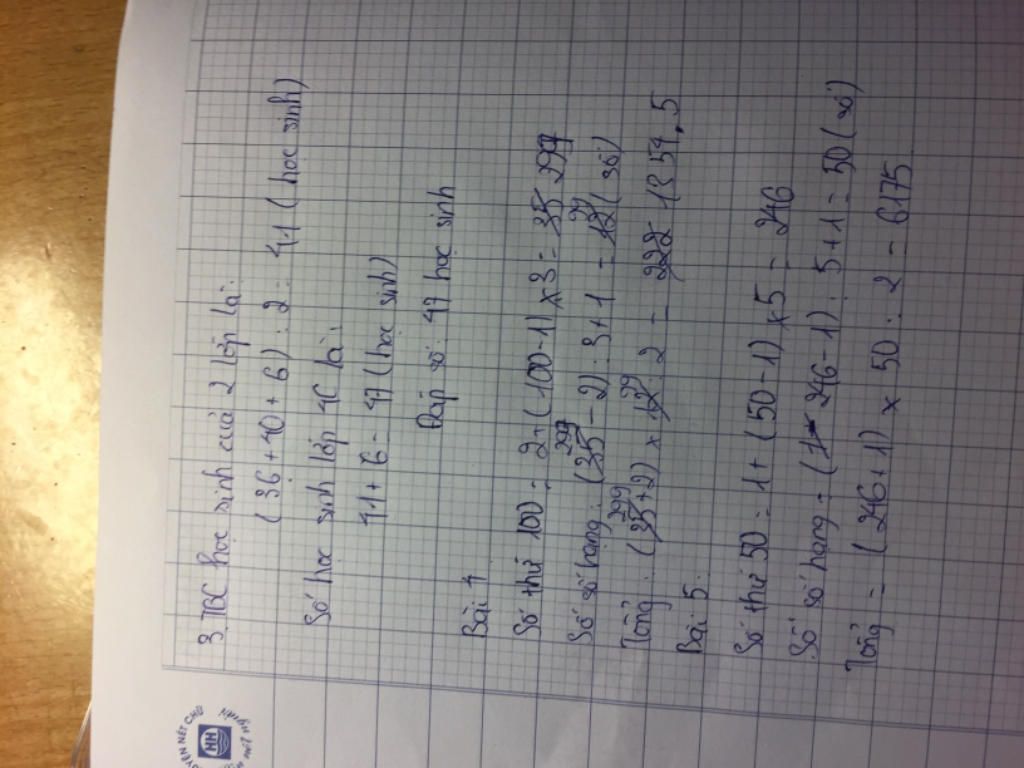 3. TBC học sinh của 2 lớp là:
(36 + 40 + 6) : 2 = 41 (học sinh)
Số học sinh lớp 4C là:
41 + 6 = 47 (học sinh)
Đáp số: 47 học sinh
Bài 4
Số thứ 100 = 2 + (100 - 1) x 3 = 299
Số số hạng: (299 - 2) : 3 + 1 = 99 (số)
Tổng: (299 + 2) x 99 : 2 =
Bài 5:
Số thứ 50 = 1 + (50 - 1) x 5 = 246
Số số hạng = (246 - 1) : 5 + 1 = 50 (số)
Tổng = (246 + 1) x 50 : 2 = 6175
NÉT CHỮ
HH